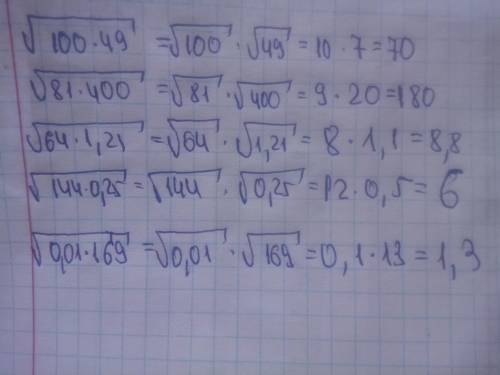 √100·49 = √100 · √49 = 10 · 7 = 70
√81·400 = √81 · √400 = 9 · 20 = 180
√64·1,21 = √64 · √1,21 = 8 · 1,1 = 8,8
√144·0,25 = √144 · √0,25 = 12 · 0,5 = 6
√0,01·169 = √0,01 · √169 = 0,1·13 = 1,3